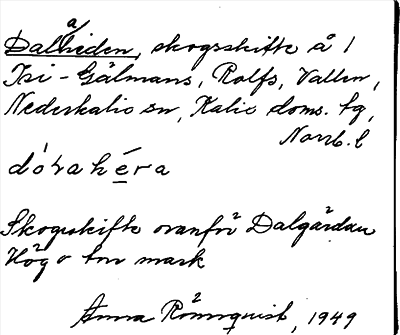 Dalaheden, skogsskifte å 1
Isi-Gälmans, Rolfs, Vallen,
Nederkalix sn, Kalix doms. tg,
Norrb. l
dórahéra
Skogsskifte ovanför Dalgårdan
Hög o torr mark
Anna Rönnquist, 1949